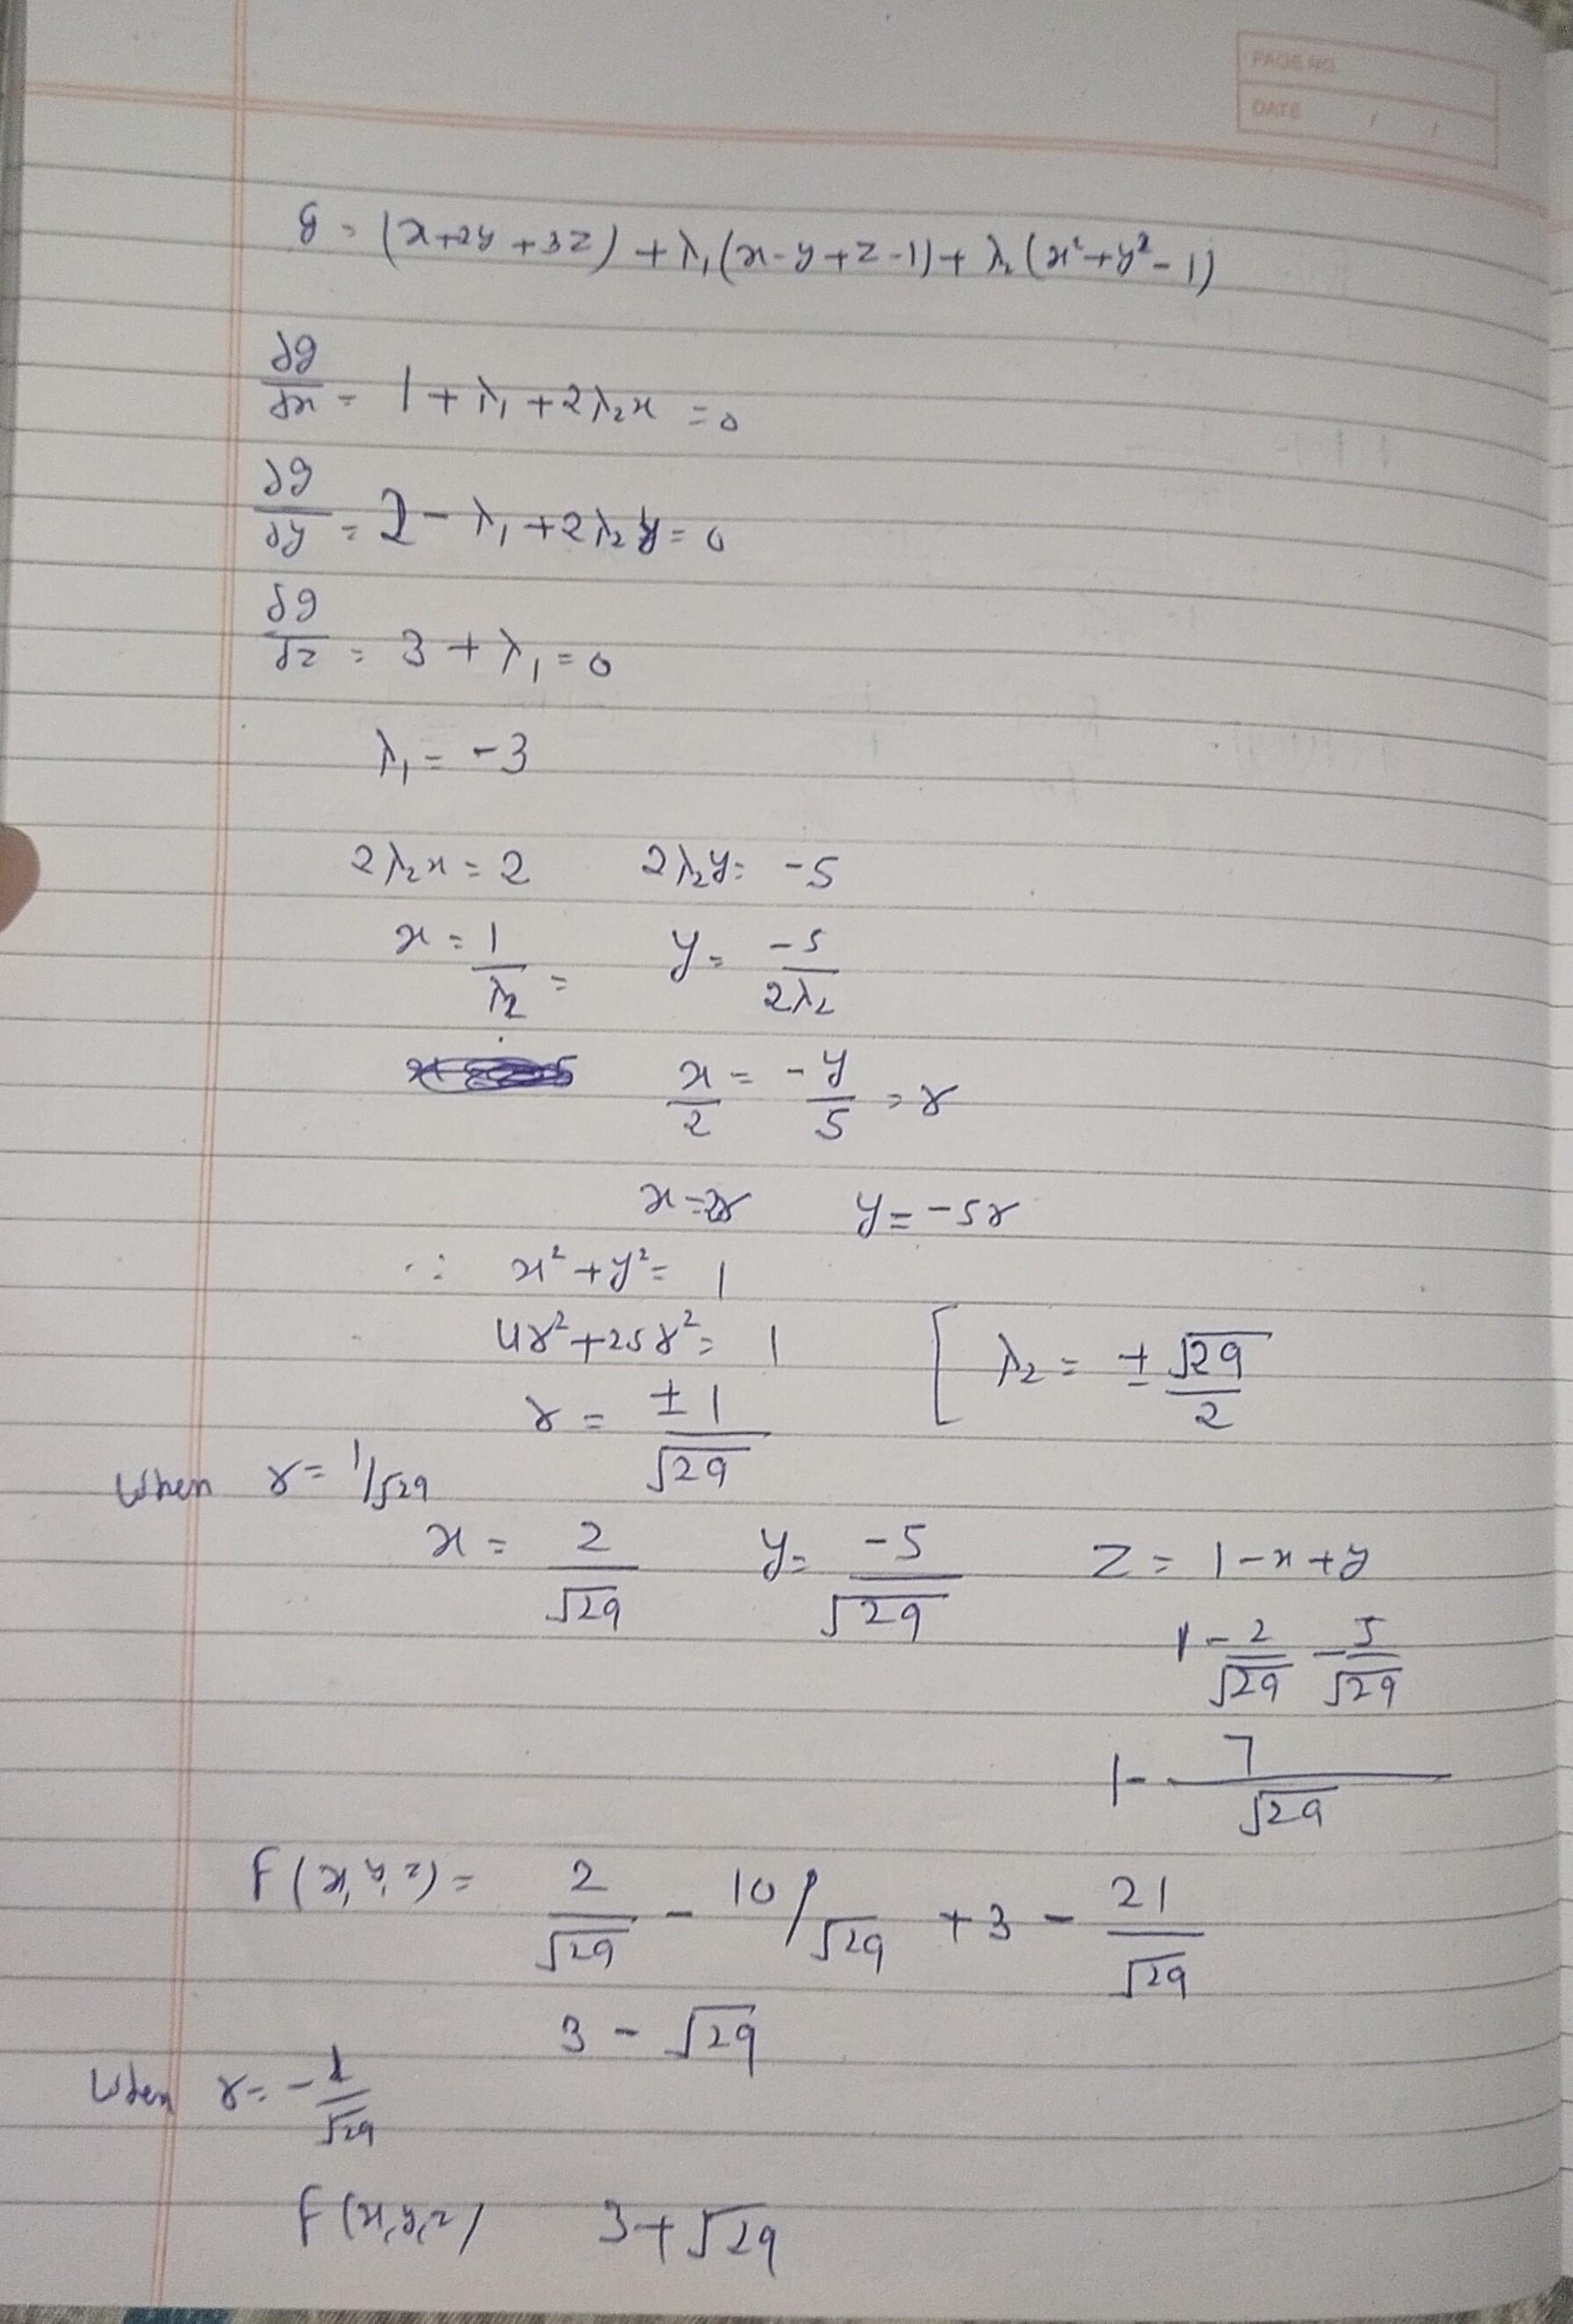 PAGE NO.
DATE / /
g = (x+2y+3z) + λ₁(x-y+z-1) + λ₂(x²+y²-1)
∂g/∂x = 1 + λ₁ + 2λ₂x = 0
∂g/∂y = 2 - λ₁ + 2λ₂y = 0
∂g/∂z = 3 + λ₁ = 0
λ₁ = -3
2λ₂x = 2 2λ₂y = -5
x = 1/λ₂ = y = -5/2λ₂
x/2 = -y/5 = r
x = 2r y = -5r
∴ x² + y² = 1
4r² + 25r² = 1 [ λ₂ = ± √29/2
r = ±1/√29
When r = 1/√29
x = 2/√29 y = -5/√29 z = 1-x+y
1 - 2/√29 - 5/√29
1 - 7/√29
F(x,y,z) = 2/√29 - 10/√29 + 3 - 21/√29
3 - √29
When r = -1/√29
F(x,y,z) 3+√29